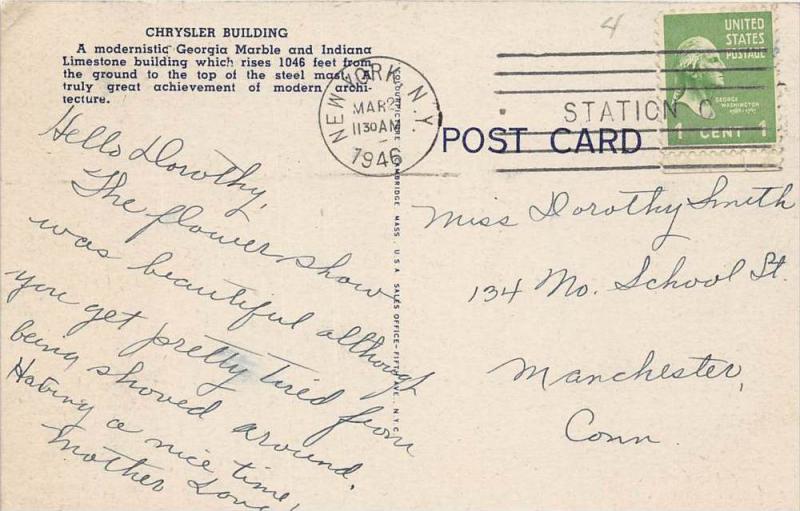 CHRYSLER BUILDING
A modernistic Georgia Marble and Indiana
Limestone building which rises 1046 feet from
the ground to the top of the steel mast. A
truly great achievement of modern archi-
tecture.
4
UNITED
STATES
POSTAGE
GEORGE
WASHINGTON
1 CENT 1
NEW YORK, N.Y.
MAR 2
11 30 AM
1946
STATION O
POST CARD
COLOURPICTURE CAMBRIDGE MASS. U.S.A. SALES OFFICE-FIFTH AVE. N.Y.C.
Hello Dorothy,
The flower show
was beautiful although
you get pretty tired from
being shoved around.
Having a nice time,
Mother Love
Miss Dorothy Smith
134 No. School St.
Manchester,
Conn.